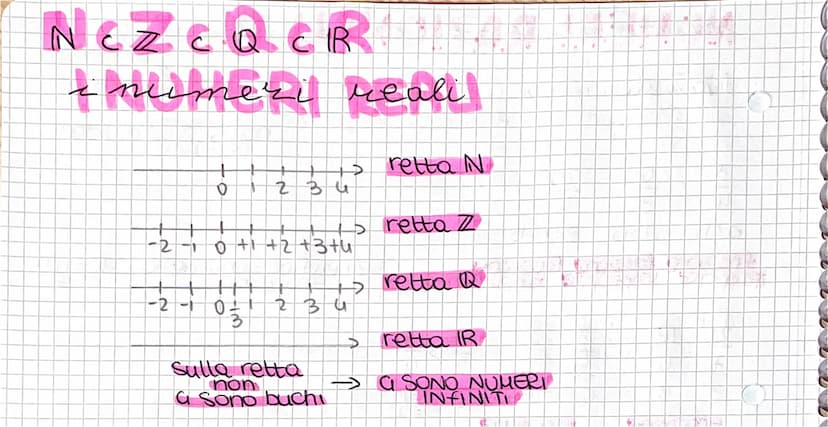 N ⊂ Z ⊂ Q ⊂ R
i numeri reali
0 1 2 3 4 retta N
-2 -1 0 +1 +2 +3 +4 retta Z
-2 -1 0 1/3 1 2 3 4 retta Q
retta R
sulla retta
non
ci sono buchi → CI SONO NUMERI
INFINITI